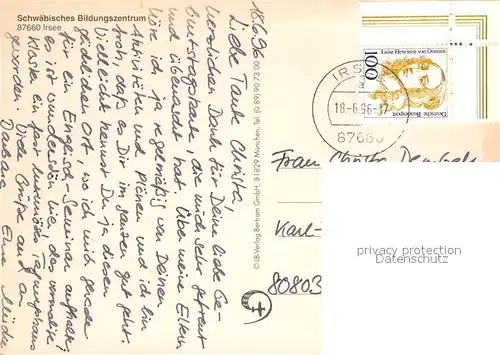 Schwäbisches Bildungszentrum
87660 Irsee
18.6.96
Liebe Tante Christa!
Herzlichen Dank für Deine liebe Ge-
burtstagskarte, die mich sehr gefreut
und überrascht hat. Über meine Eltern
höre ich ja regelmäßig von Deinen
Aktivitäten und Plänen und ich bin
froh, daß es Dir im ganzen gut geht.
Vielleicht kennst Du ja diesen
Ort, wo ich mich gerade
für ein Englisch-Seminar aufhalte,
es ist wunderschön wie das ehemalige
Kloster ein
geworden. Viele Grüße auch an
Barbara Eure
© LB-Verlag Bertram GmbH, 81829 München, Tel. (0 89) 90 73 00
Luise Henriette von Oranien
100
Deutsche Bundespost
IRSEE
a
18.-6.96-17
87660
Frau Christa
Karl-
80803
privacy protection
Datenschutz